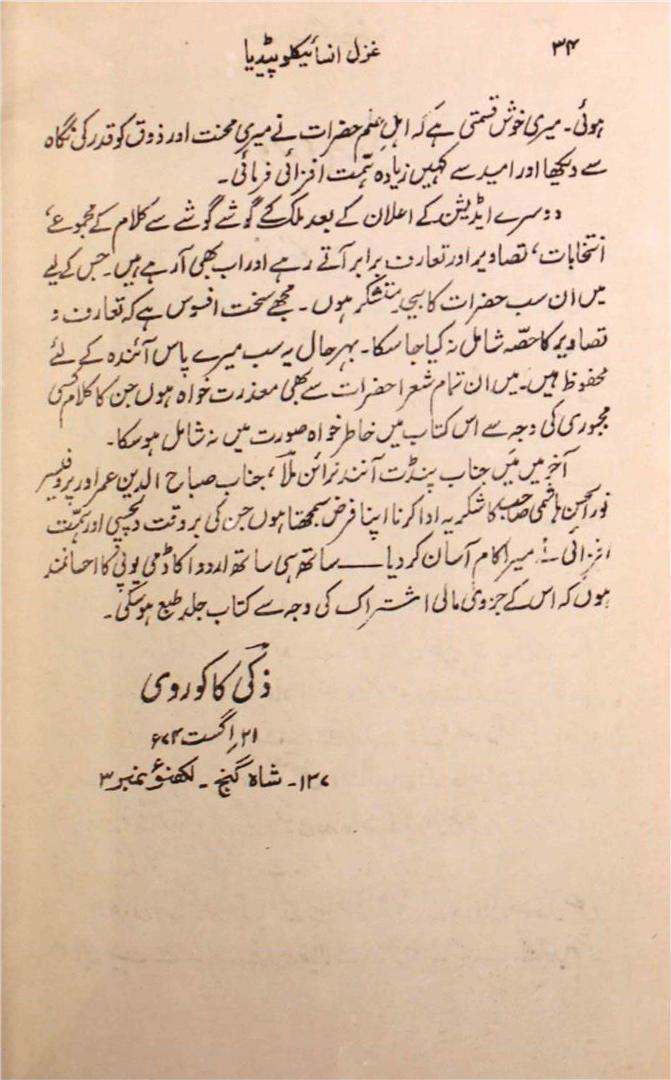 ۳۴ غزل انسائیکلوپیڈیا
ہوئی۔ میری خوش قسمتی ہے کہ اہلِ علم حضرات نے میری محنت اور ذوق کو قدر کی نگاہ
سے دیکھا اور امید سے کہیں زیادہ ہمّت افزائی فرمائی۔
دوسرے ایڈیشن کے اعلان کے بعد ملک کے گوشے گوشے سے کلام کے مجموعے،
انتخابات، تصاویر اور تعارف برابر آتے رہے اور اب بھی آرہے ہیں۔ جس کے لیے
میں ان سب حضرات کا بیحد متشکر ہوں۔ مجھے سخت افسوس ہے کہ تعارف و
تصاویر کا حصّہ شامل نہ کیا جا سکا۔ بہرحال یہ سب میرے پاس آئندہ کے لئے
محفوظ ہیں۔ میں ان تمام شعرا حضرات سے بھی معذرت خواہ ہوں جن کا کلام کسی
مجبوری کی وجہ سے اس کتاب میں خاطر خواہ صورت میں نہ شامل ہو سکا۔
آخر میں مَیں جناب پنڈت آنند نرائن ملّا، جناب صباح الدین عمر اور پروفیسر
نور الحسن ہاشمی صاحب کا شکریہ ادا کرنا اپنا فرض سمجھتا ہوں جن کی بروقت دلچسپی اور ہمّت
افزائی نے میرا کام آسان کر دیا — ساتھ ہی ساتھ اردو اکاڈمی یوپی کا احسانمند
ہوں کہ اس کے جزوی مالی اشتراک کی وجہ سے کتاب جلد طبع ہو سکی۔
ذکی کاکوروی
۲۱ اگست ۷۴ء
۱۳۷۔ شاہ گنج۔ لکھنؤ نمبر ۳